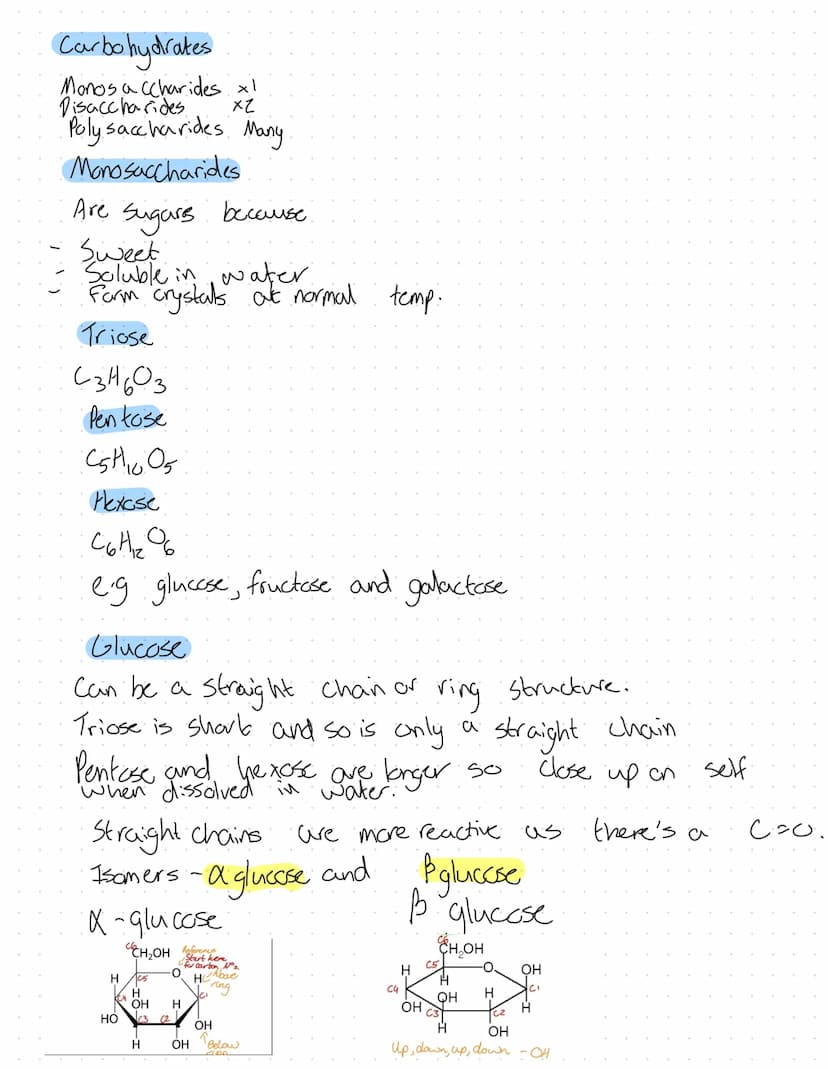 Carbohydrates
Monosaccharides x1
Disaccharides x2
Polysaccharides Many
Monosaccharides
Are sugars because
- Sweet
- Soluble in water
- Form crystals at normal temp.
Triose
C3H6O3
Pentose
C5H10O5
Hexose
C6H12O6
e.g glucose, fructose and galactose
Glucose
Can be a straight chain or ring structure.
Triose is short and so is only a straight chain
Pentose and hexose are longer so close up on self
when dissolved in water.
Straight chains are more reactive as there's a C=O.
Isomers - α glucose and β glucose
α - glucose
β glucose
C6
CH₂OH
Reference
Start here
for carbon Nº2
C5
O
H
H
Above
ring
H
C4
OH
H
C1
HO
C3
C2
OH
H
OH
Below
C6
CH₂OH
C5
O
H
H
OH
C4
C1
OH
OH
H
H
C3
C2
H
OH
Up, down, up, down - OH